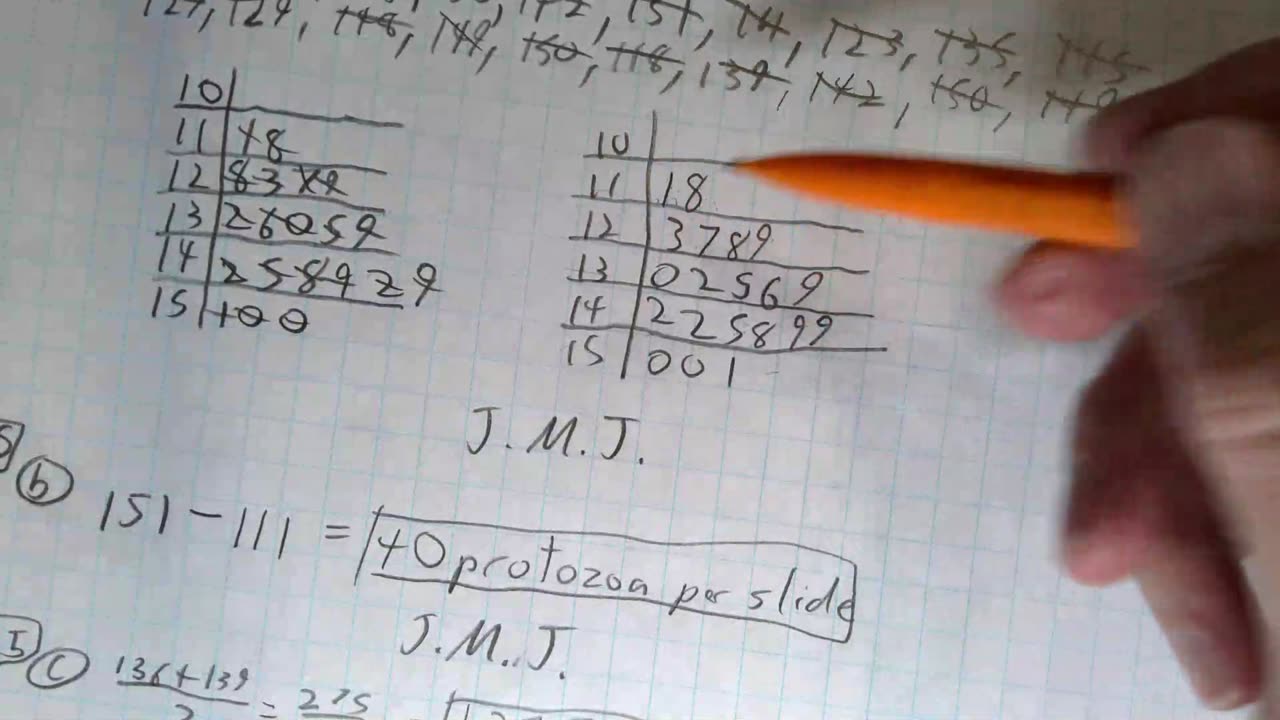 127, 129, 148, 149, 150, 118, 139, 142, 150, 149
142, 151, 111, 123, 135, 145
10 |
11 | 18
12 | 8379
13 | 26059
14 | 2589 29
15 | 100
10 |
11 | 18
12 | 3789
13 | 02569
14 | 225899
15 | 001
J.M.J.
(b) 151 - 111 = 40 protozoa per slide
J.M.J.
5 (c) 136 + 139 / 2 = 275